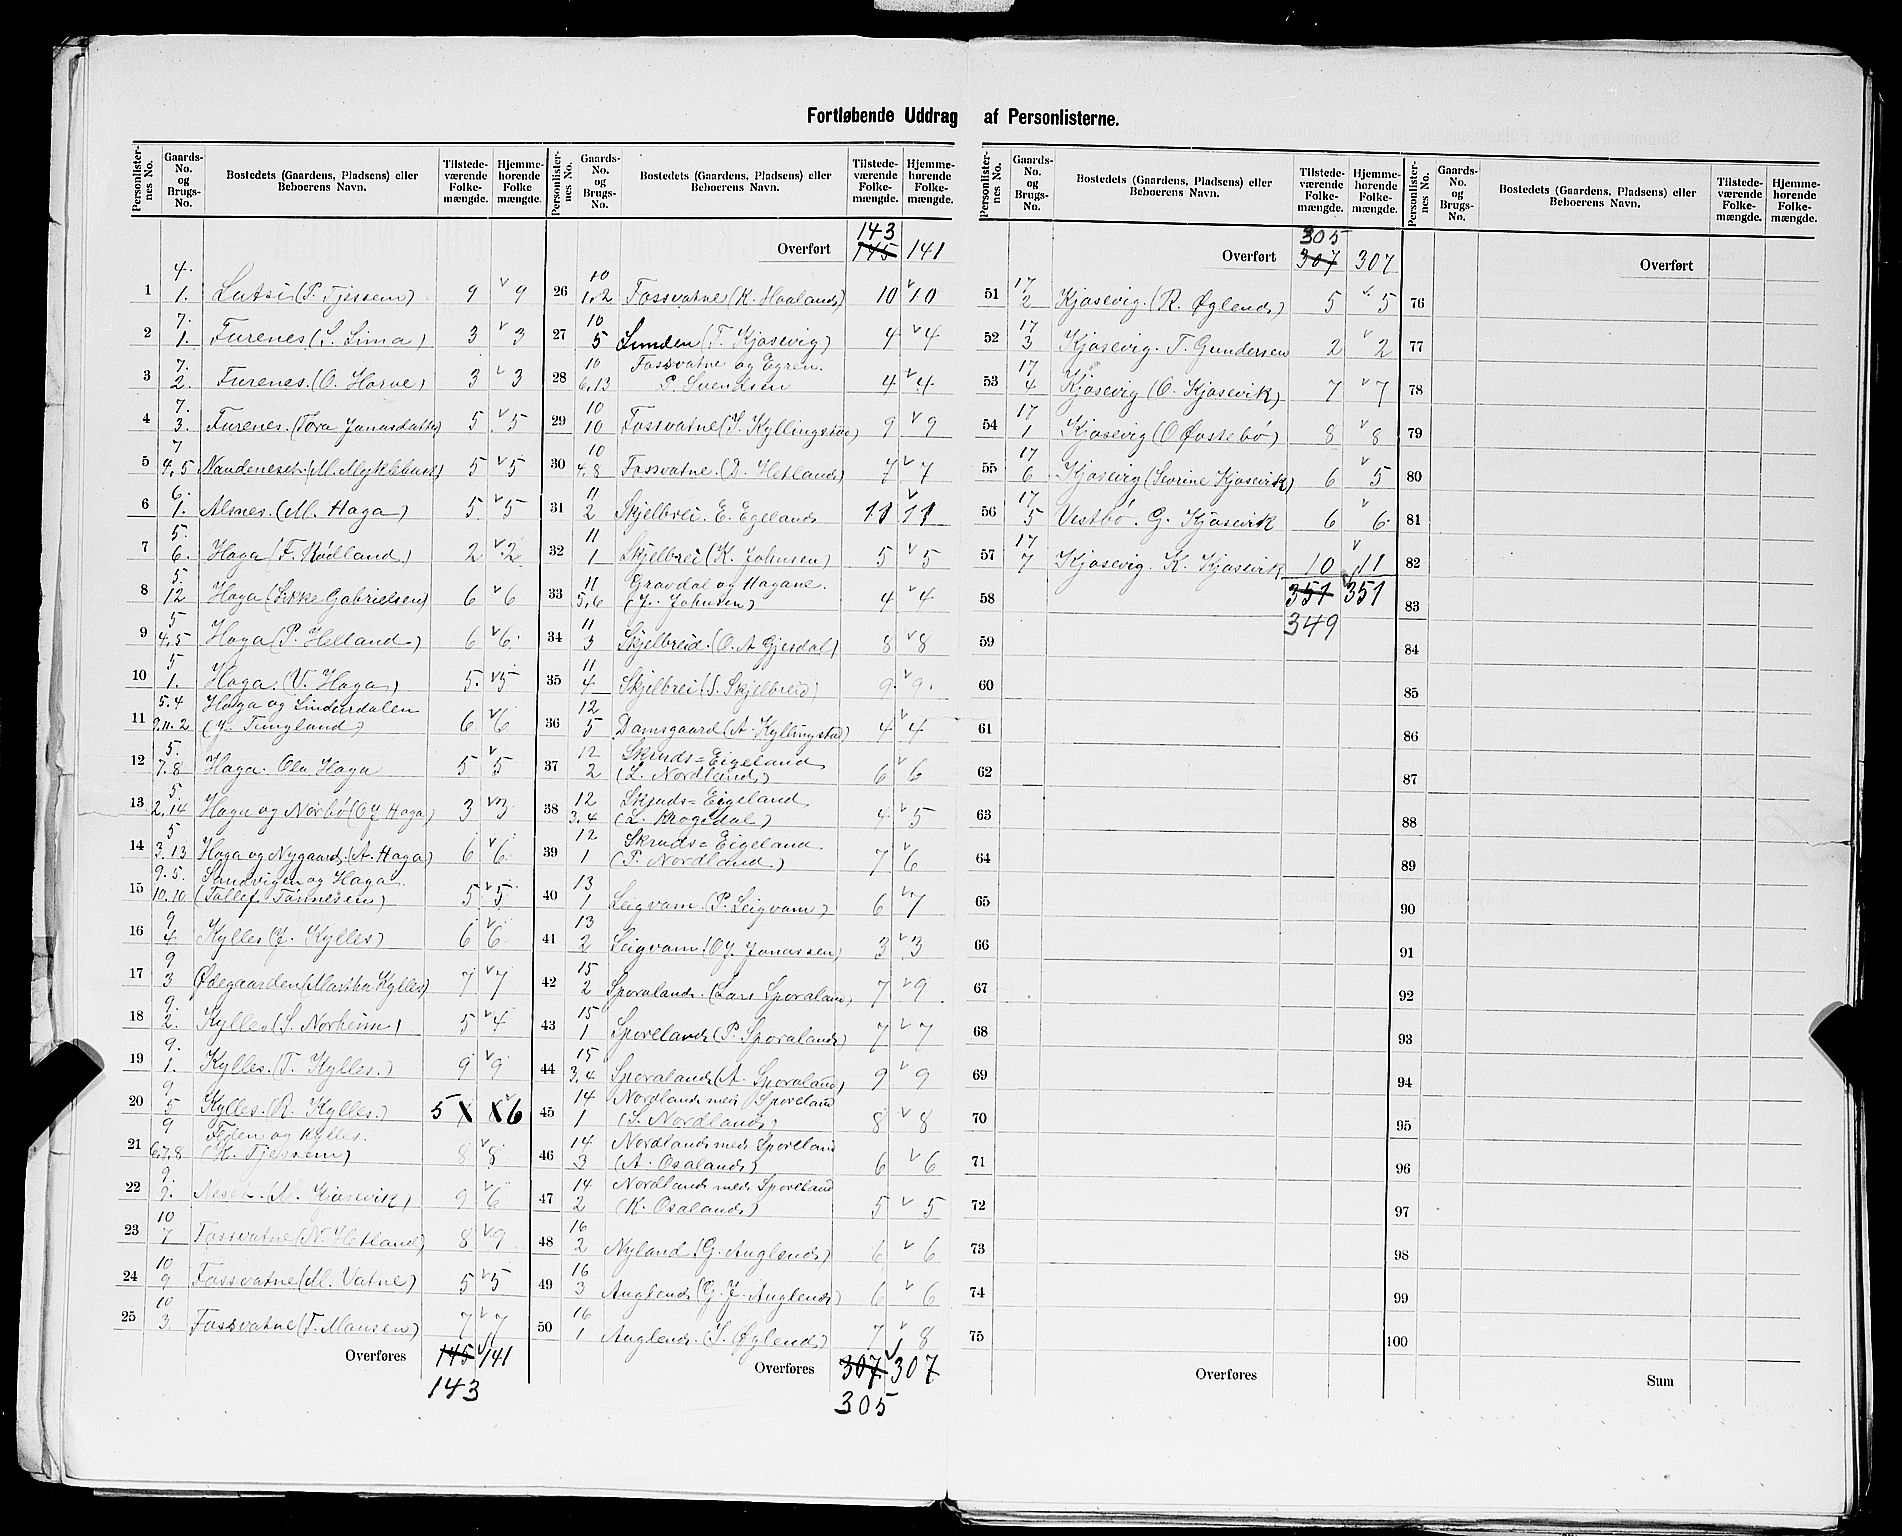 Fortløbende Uddrag af Personlisterne.
Personlister-nes No. Gaards-No. og Brugs-No. Bostedets (Gaardens, Pladsens) eller Beboerens Navn. Tilstede-værende Folke-mængde. Hjemme-hørende Folke-mængde.
1 4. 1. (P. Tjessem) 9 v 9
2 7. 1. Furenes (S. Lima) 3 v 3
3 7. 2. Furenes. (O. Horve) 3 v 3
4 7. 3. Furenes. (Tora Jonasdatter 5 v 5
5 7 4,5 (M. Myklebust) 5 v 5
6 6. 1. Alsnes. (M. Haga) 5 v 5
7 5. 6. Haga (F. Rødland) 2 v 2
8 5. 12 Haga (Sikke Gabrielsen) 6 v 6
9 5 4,5 Haga (P. Helland) 6 v 6.
10 5 1. Haga. (V. Haga) 5. v 5
11 5.4 9.11.2 Haga og Linderdalen
(J. Tungland) 6 v 6
12 5. 7.8 Haga. Ola Haga 5 v 5
13 5. 2,14 Haga og Nørbø (O J Haga) 3 v 3
14 5 3.13 Haga og Nygaard. (A. Haga) 6 v 6
15 9.5. 10.10 Sandvigen og Haga
(Tollef Tønnesen) 5 v 5
16 9 4 Kylles (J. Kylles) 6 v 6
17 9 3 Ødegaarden (Martha Kylles) 7 v 7
18 9. 2. Kylles (S. Norheim) 5 v 4
19 9. 1. Kylles. (T. Kylles.) 9 v 9
20 9 5 Kylles. (R. Kylles.) 5 X X 6
21 9 6.7.8 Fejen og Kylles.
(K. Tjessem) 8 v 8
22 9. 9. Neset. (M. Kjosevik) 9 v 6
23 10 7 Fossvatne (N. Hetland) 8 v 7
24 10 9 Fossvatne (M. Vatne) 5 v 5
25 10 3. Fossvatne (T. Mansen) 7 v 7
Overføres 145 141
143
Personlister-nes No. Gaards-No. og Brugs-No. Bostedets (Gaardens, Pladsens) eller Beboerens Navn. Tilstede-værende Folke-mængde. Hjemme-hørende Folke-mængde.
143
Overført 145 141
26 10 1.2 Fossvatne (K. Haaland) 10 v 10
27 10 5 Linden (T. Kjosevig) 4 v 4
28 10 6,13 Fossvatne og Egren.
P. Svendsen 4 v 4
29 10 10 Fossvatne (S. Kyllingstad) 9 v 9
30 10 4,8 Fossvatne. (D. Hetland) 7 v 7
31 11 2 Skjelbrei. E. Egeland 11 v 11
32 11 1 Skjelbrei (K. Johnsen) 5 v 5
33 11 5,6 Gravdal og Hagane.
(J. Johnsen) 4 v 4
34 11 3 Skjelbreid. (O. A Gjesdal) 8 v 8
35 11 4 Skjelbrei (S. Skjelbreid) 9. v 9.
36 12 5 Damsgaard (A. Kyllingstad) 4 v 4
37 12 2 Skruds=Eigeland
(L. Nordland) 6 v 6
38 12 3.4 Skruds=Eigeland
(L. Krogedal) 4 v 5
39 12 1 Skruds=Eigeland
(P. Nordland) 7 v 6
40 13 1 Leigvam (P. Leigvam) 6 v 7
41 13 2 Leigvam (O J. Jonassen) 3 v 3
42 15 2 Sporaland. (Lars Sporaland) 7 v 9
43 15 1 Sporeland (P. Sporaland) 7 v 7
44 15 3,4 Sporaland (A. Sporaland) 9 v 9
45 14 1 Nordland med Sporeland
(S. Nordland) 8 v 8
46 14 3 Nordland med Sporeland
(A. Osaland) 6 v 6
47 14 2 Nordland med Sporeland
(K. Osaland) 5 v 5
48 16 2 Nyland (G. Auglend) 6 v 6
49 16 3 Auglend (G. J. Auglend) 6 v 6
50 16 1 Auglend. (S. Øglend) 7 v 8
Overføres 307 307
305
Personlister-nes No. Gaards-No. og Brugs-No. Bostedets (Gaardens, Pladsens) eller Beboerens Navn. Tilstede-værende Folke-mængde. Hjemme-hørende Folke-mængde.
305
Overført 307 307
51 17 2 Kjosevig. (R. Øglend) 5 v 5
52 17 3 Kjosevig. T. Gundersen 2 v 2
53 17 4 Kjosevig (O. Kjosevik) 7 v 7
54 17 1 Kjosevig (O Østebø) 8 v 8
55 17 6 Kjosevig (Sevrine Kjosevik) 6 v 5
56 17 5 Vestbø. G. Kjosevik 6 v 6
57 17 7 Kjosevig. K. Kjosevik 10 v 11
58 351 351
349
59
60
61
62
63
64
65
66
67
68
69
70
71
72
73
74
75
Overføres
Personlister-nes No. Gaards-No. og Brugs-No. Bostedets (Gaardens, Pladsens) eller Beboerens Navn. Tilstede-værende Folke-mængde. Hjemme-hørende Folke-mængde.
Overført
76
77
78
79
80
81
82
83
84
85
86
87
88
89
90
91
92
93
94
95
96
97
98
99
100
Sum